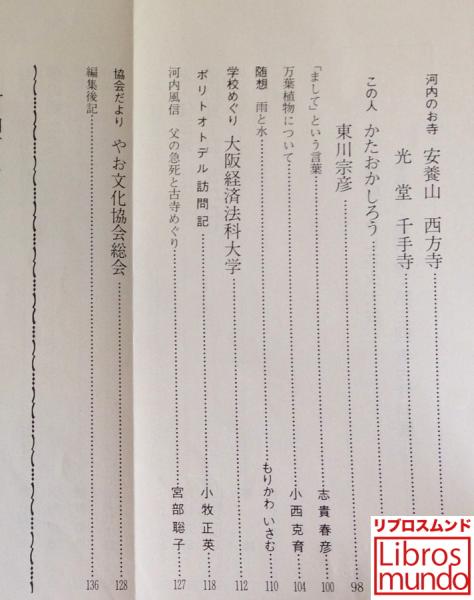 河内のお寺 安養山 西方寺
光堂 千手寺
この人 かたおかしろう
東川宗彦 98
「まして」という言葉 志貴春彦 100
万葉植物について 小西克育 104
随想 雨と水 もりかわ いさむ 110
学校めぐり 大阪経済法科大学 112
ポリトオトデル訪問記 小牧正英 118
河内風信 父の急死と古寺めぐり 宮部聡子 127
協会だより やお文化協会総会 128
編集後記 136
リブロスムンド
Libros
mundo